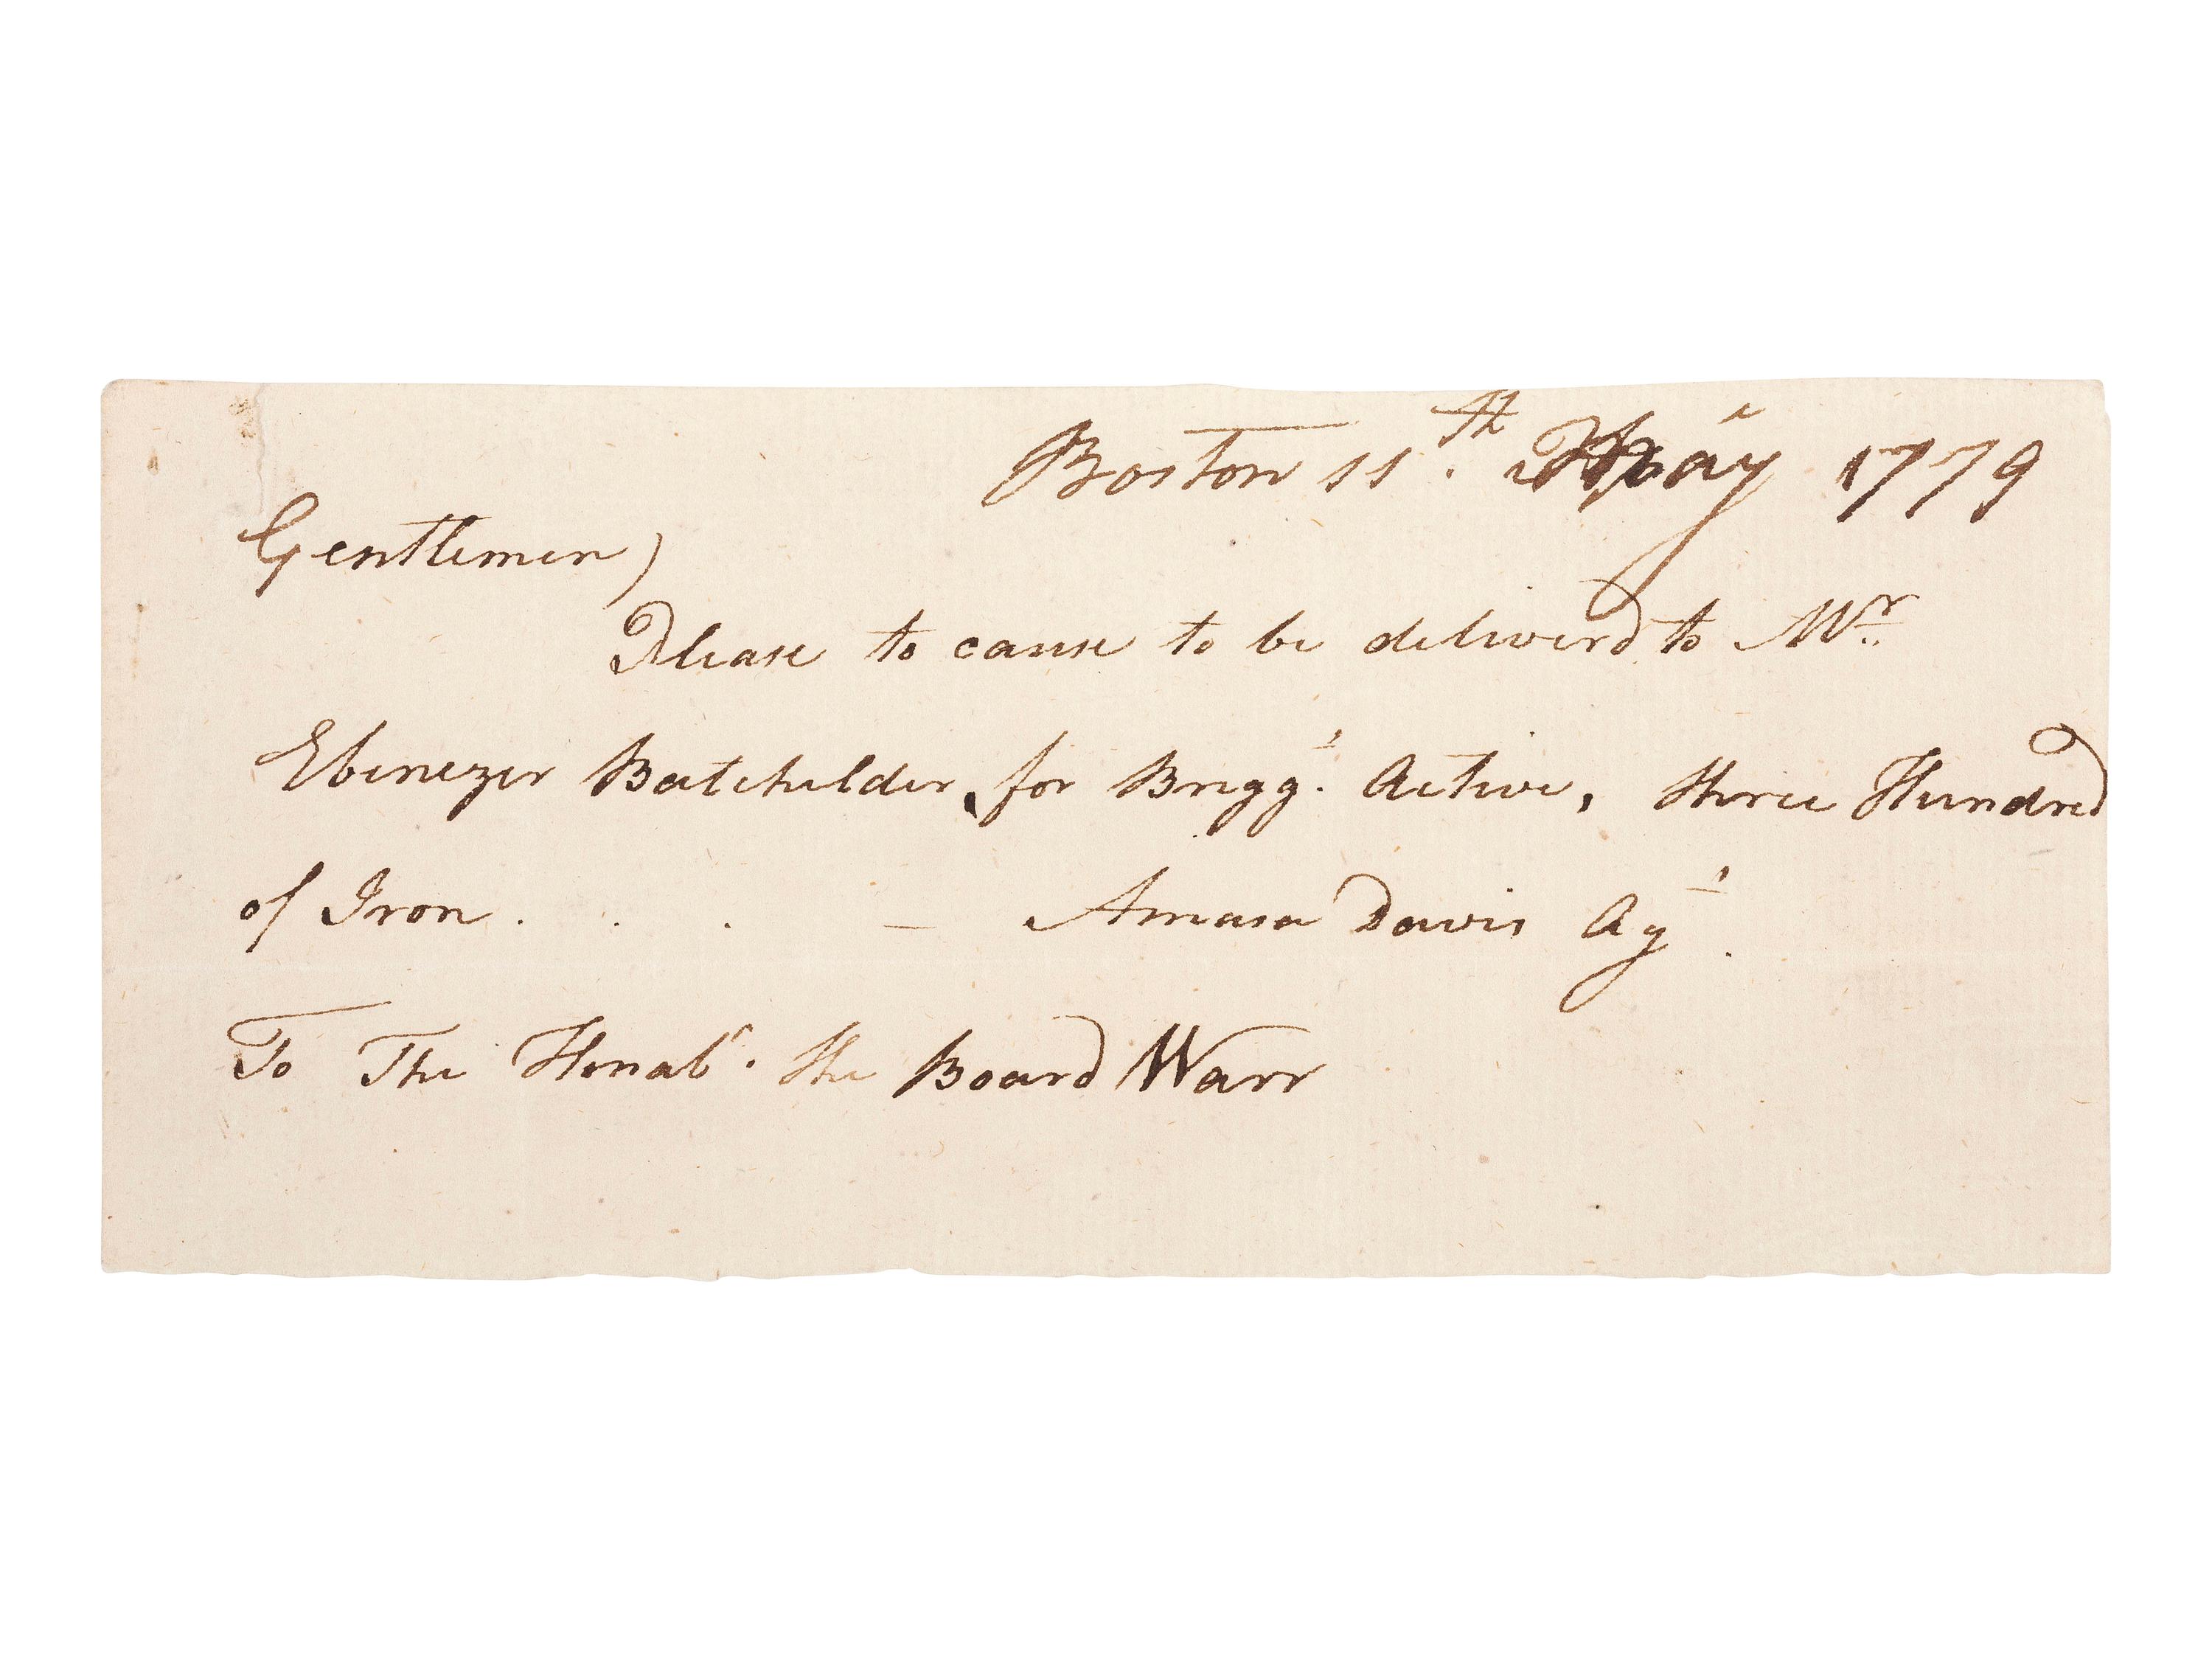 Boston 11th. May 1779
Gentlemen)
Please to cause to be deliverd to Mr.
Ebenezer Batchelder, for Brigg't. Active, three Hundred
of Iron . . . — Amasa Davis Agt.
To The Honabl. the Board Warr